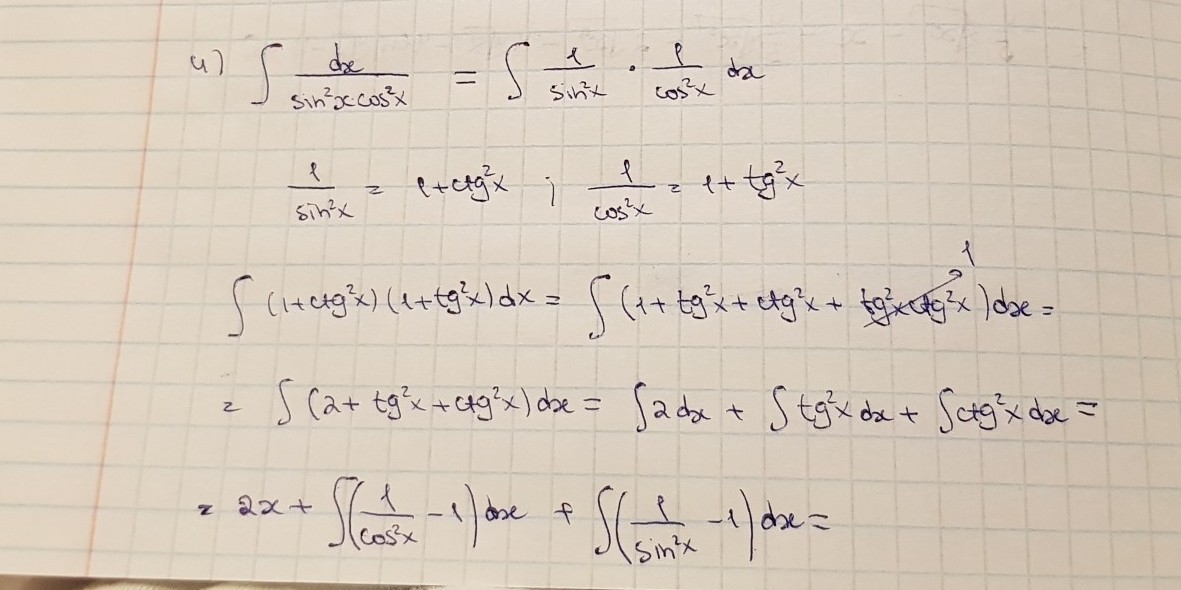 4) ∫ dx/(sin²x cos²x) = ∫ 1/sin²x · 1/cos²x dx
1/sin²x = 1+ctg²x ; 1/cos²x = 1+tg²x
∫ (1+ctg²x)(1+tg²x)dx = ∫ (1+tg²x+ctg²x+tg²x ctg²x)dx = 1
= ∫ (2+tg²x+ctg²x)dx = ∫2dx + ∫tg²x dx + ∫ctg²x dx =
= 2x + ∫(1/cos²x - 1)dx + ∫(1/sin²x - 1)dx =